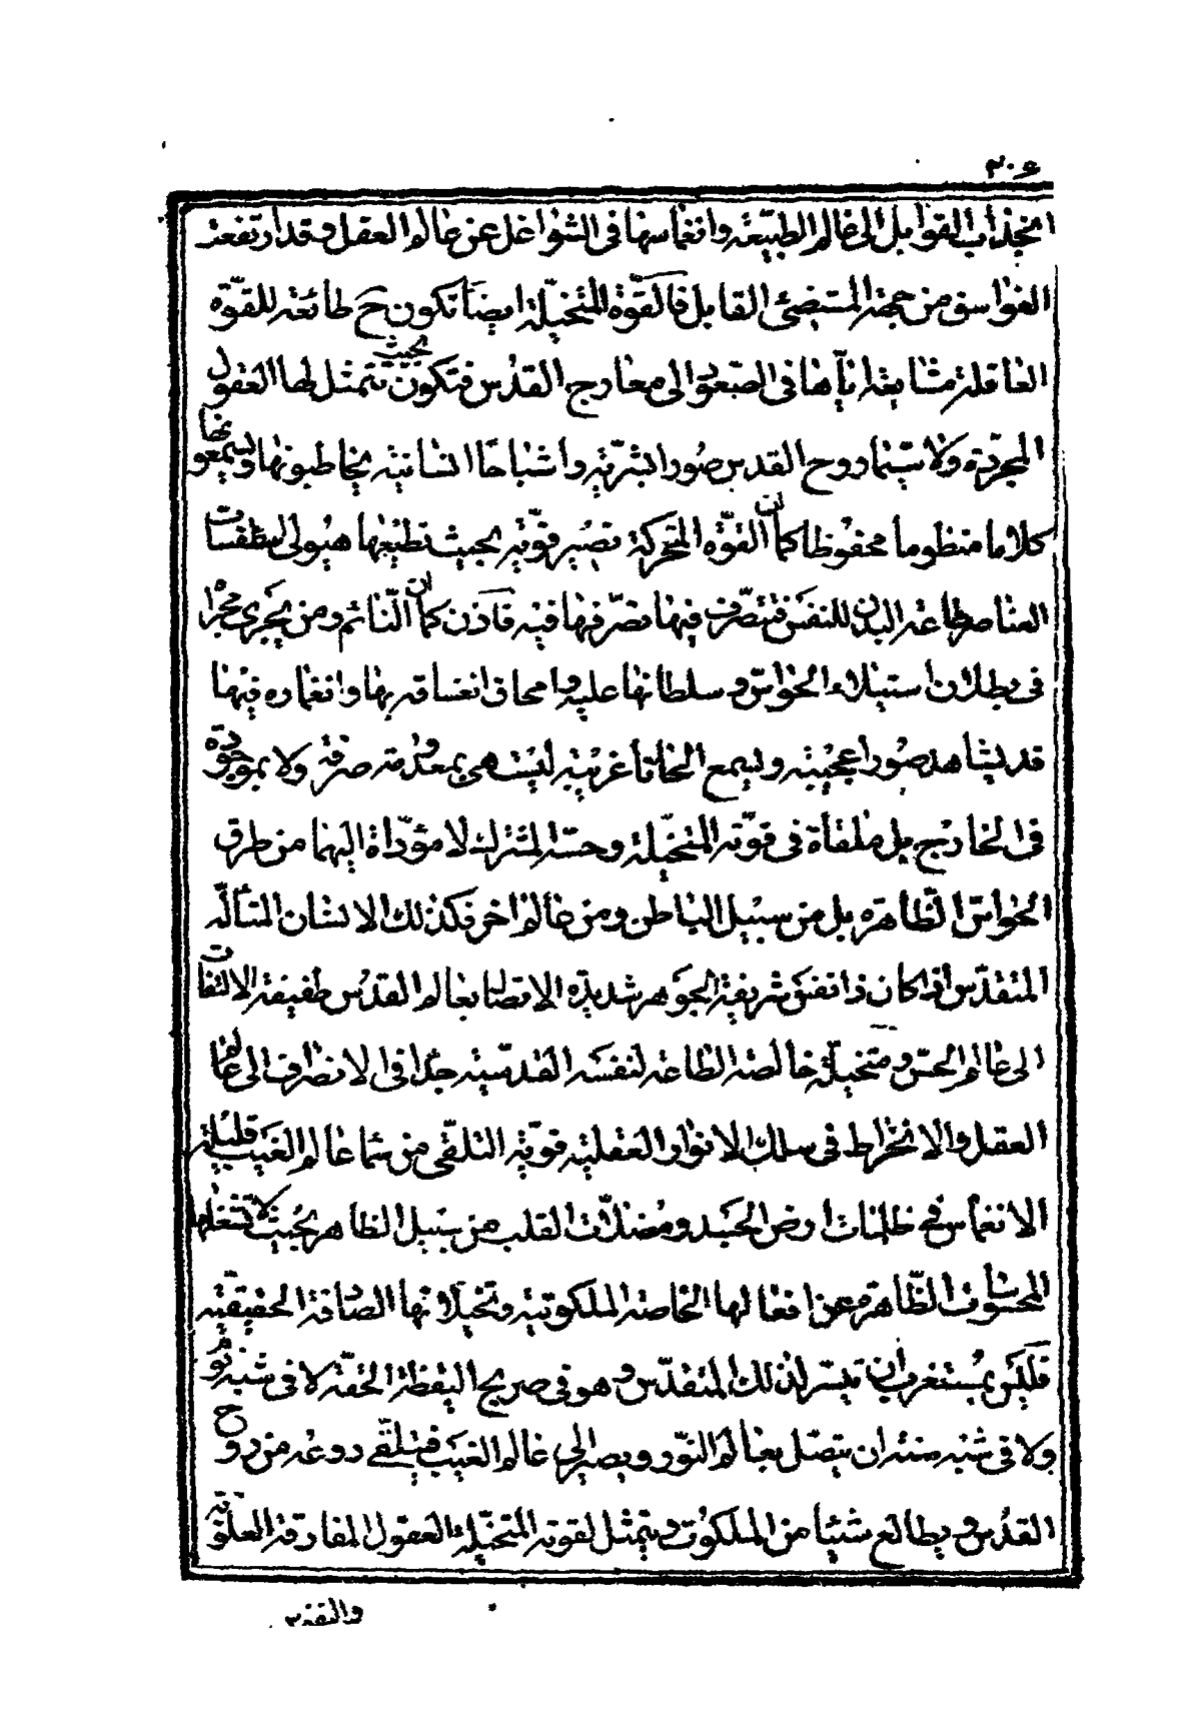 ٢٠٤
انجذاب القوابل الى عالم الطبيعة وانغماسها فى الشواغل عن عالم العقل وقد ارتفعت
الغواسق من جهة المستضئ القابل فالقوّة المتخيّلة ايضا تكون ح طائعة للقوّة
العاقلة مشايعة ايّاها فى الصّعود الى معارج القدس فتكون بحيث تتمثل لها العقول
المجرّدة ولا سيّما روح القدس صورا بشريّة واشباحا انسانية يخاطبونها ويسمعونها
كلاما منظوما محفوظا كما ان القوّة المتحركة تصير قويّة بحيث تطيعها هيولى اسطقسات
العناصر طاعة البدن للنفس فتتصرّف فيها تصرّفها فيه فاذن كما ان النّائم ومن يجرى مجراه
فى بطلان استيلاء الحواسّ وسلطانها عليه وامحاق انغساقه بها وانغماره فيها
قد يشاهد صورا عجيبة ويسمع الحانا غريبة ليست هى بمعدومة صرفة ولا بموجودة
فى الخارج بل ملقاة فى قوّته المتخيّلة وحسّه المشترك لا مؤدّاة اليهما من طرق
الحواسّ الظّاهرة بل من سبيل الباطن ومن عالم اخر فكذلك الانسان المتألّه
المتقدّس اذا كان ذا نفس شريفة الجوهر شديدة الاتصال بعالم القدس طفيفة الالتفات
الى عالم الحسّ ومتخيلة خالصة الطاعة لنفسه القدسيّة جدّا فى الانصراف الى عالم
العقل والانخراط فى سلك الانوار العقلية قويّة التلقّى من سماء عالم الغيب قليلة
الانغماس فى ظلمات ارض الجسد ومضلّات القلب من سبيل الظاهر بحيث لا تشغلها
المحسوسات الظّاهرة عن افعالها الخاصة الملكوتية وتخيلاتها الصادقة الحقيقيّة
فليس بمستغرب ان تيسّر لذلك المتقدّس وهو فى صريح اليقظة الحقّة لا فى شبه نوم
ولا فى شبه سنة ان يتصل بعالم النّور ويصير الى عالم الغيب فيتلقّى روعه من روح
القدس ويطالع شيئا من الملكوت ويتمثل لقوته المتخيّلة العقول المفارقة العلوّية
والنفوس